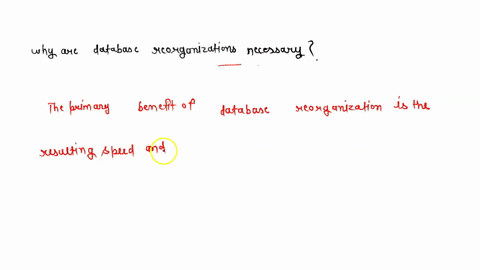 why are database reorganizations necessary?
The primary benefit of database reorganization is the
resulting speed and